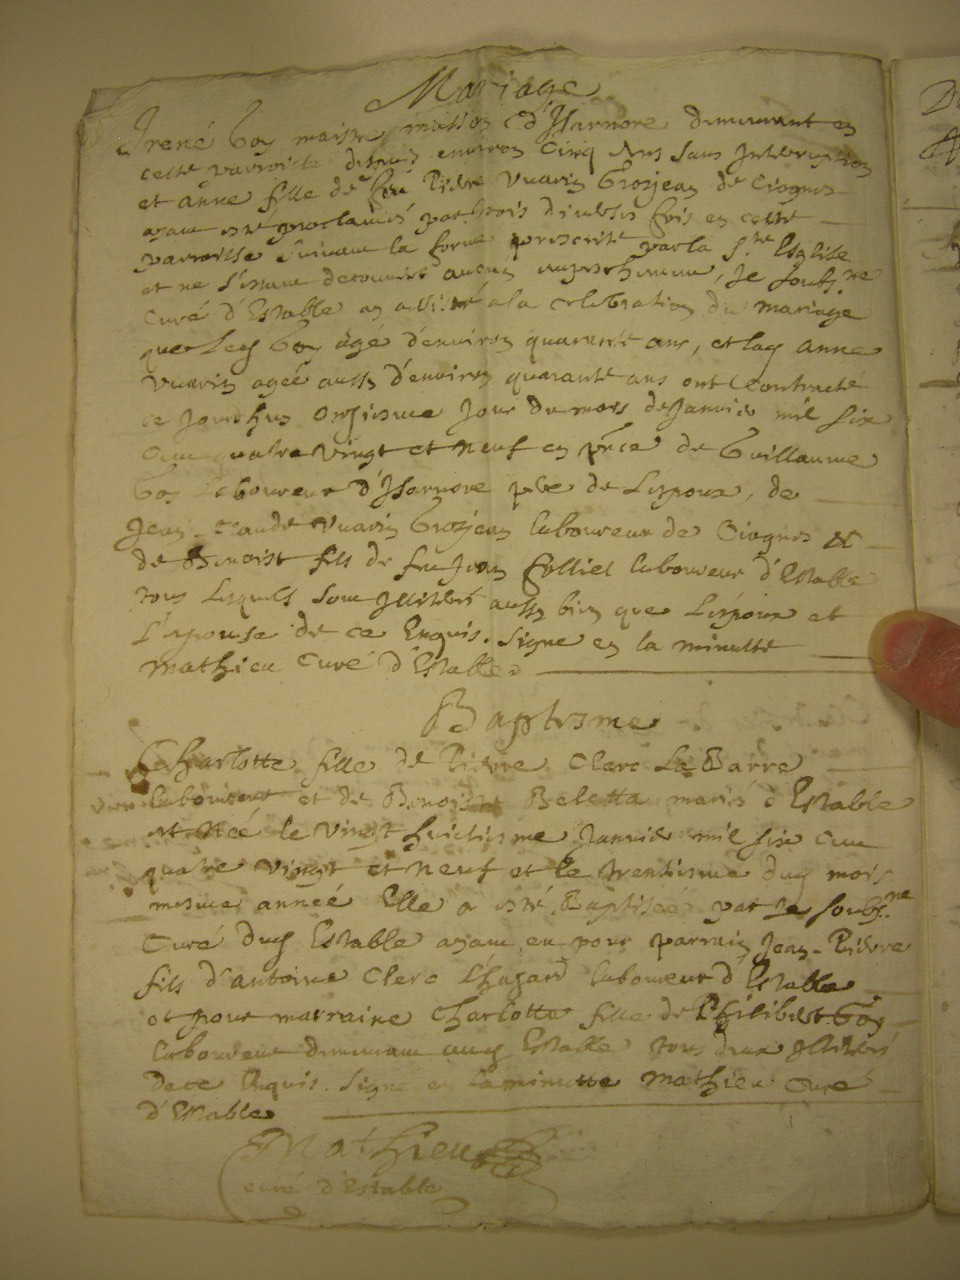 Mariage
Irené Goy maistre d'Isarnore demeurant en
cette parroisse depuis environ Cinq Ans sans Interruption
et anne fille de feu Pierre Vuarin Grosjean de Ciognes
ayant esté proclamés par trois diverses fois en cette
parroisse suivant la forme prescrite par la S.te Esglise
et ne s'estant decouvert aucun empeschement, Je soubs.ne
Curé d'Estable ay assisté a la celebration du mariage
que led Goy âgé d'environ quarante ans, et lad anne
Vuarin agée aussy d'environ quarante ans ont Contracté
ce jourdhuy onziesme jour du mois de Janvier mil six
cent quatre vingt et neuf en pñce de Guillaume
Goy laboureur d'Isarnore pere de L'espoux, de
Jean-Claude Vuarin Grosjean laboureur de Ciognes &
de Benoist fils de feu Jean Colliet laboureur d'Estable
tous lesquels sont Illiterés aussy bien que L'espoux et
L'espouse de ce Enquis. Signé en la minutte
Mathieu Curé d'Estable
Baptesme
Charlotte fille de Pierre Clerc La Barre
laboureur et de Benoiste Beletta mariés d'Estable
est Née le vingt huictiesme Janvier mil six cent
quatre vingt et neuf et le trentiesme dud mois
mesme année Elle a esté Baptisée par Je soubs.ne
Curé dud Estable ayant eu pour parrain Jean-Pierre
fils d'antoine Clerc Lhazard laboureur d'Estable
et pour marraine Charlotte fille de Philibert Goy
laboureur demeurant aud Estable tous deux Illiterés
de ce Enquis. Signé en la minutte Mathieu Curé
d'Estable
Mathieu
curé d'Estable